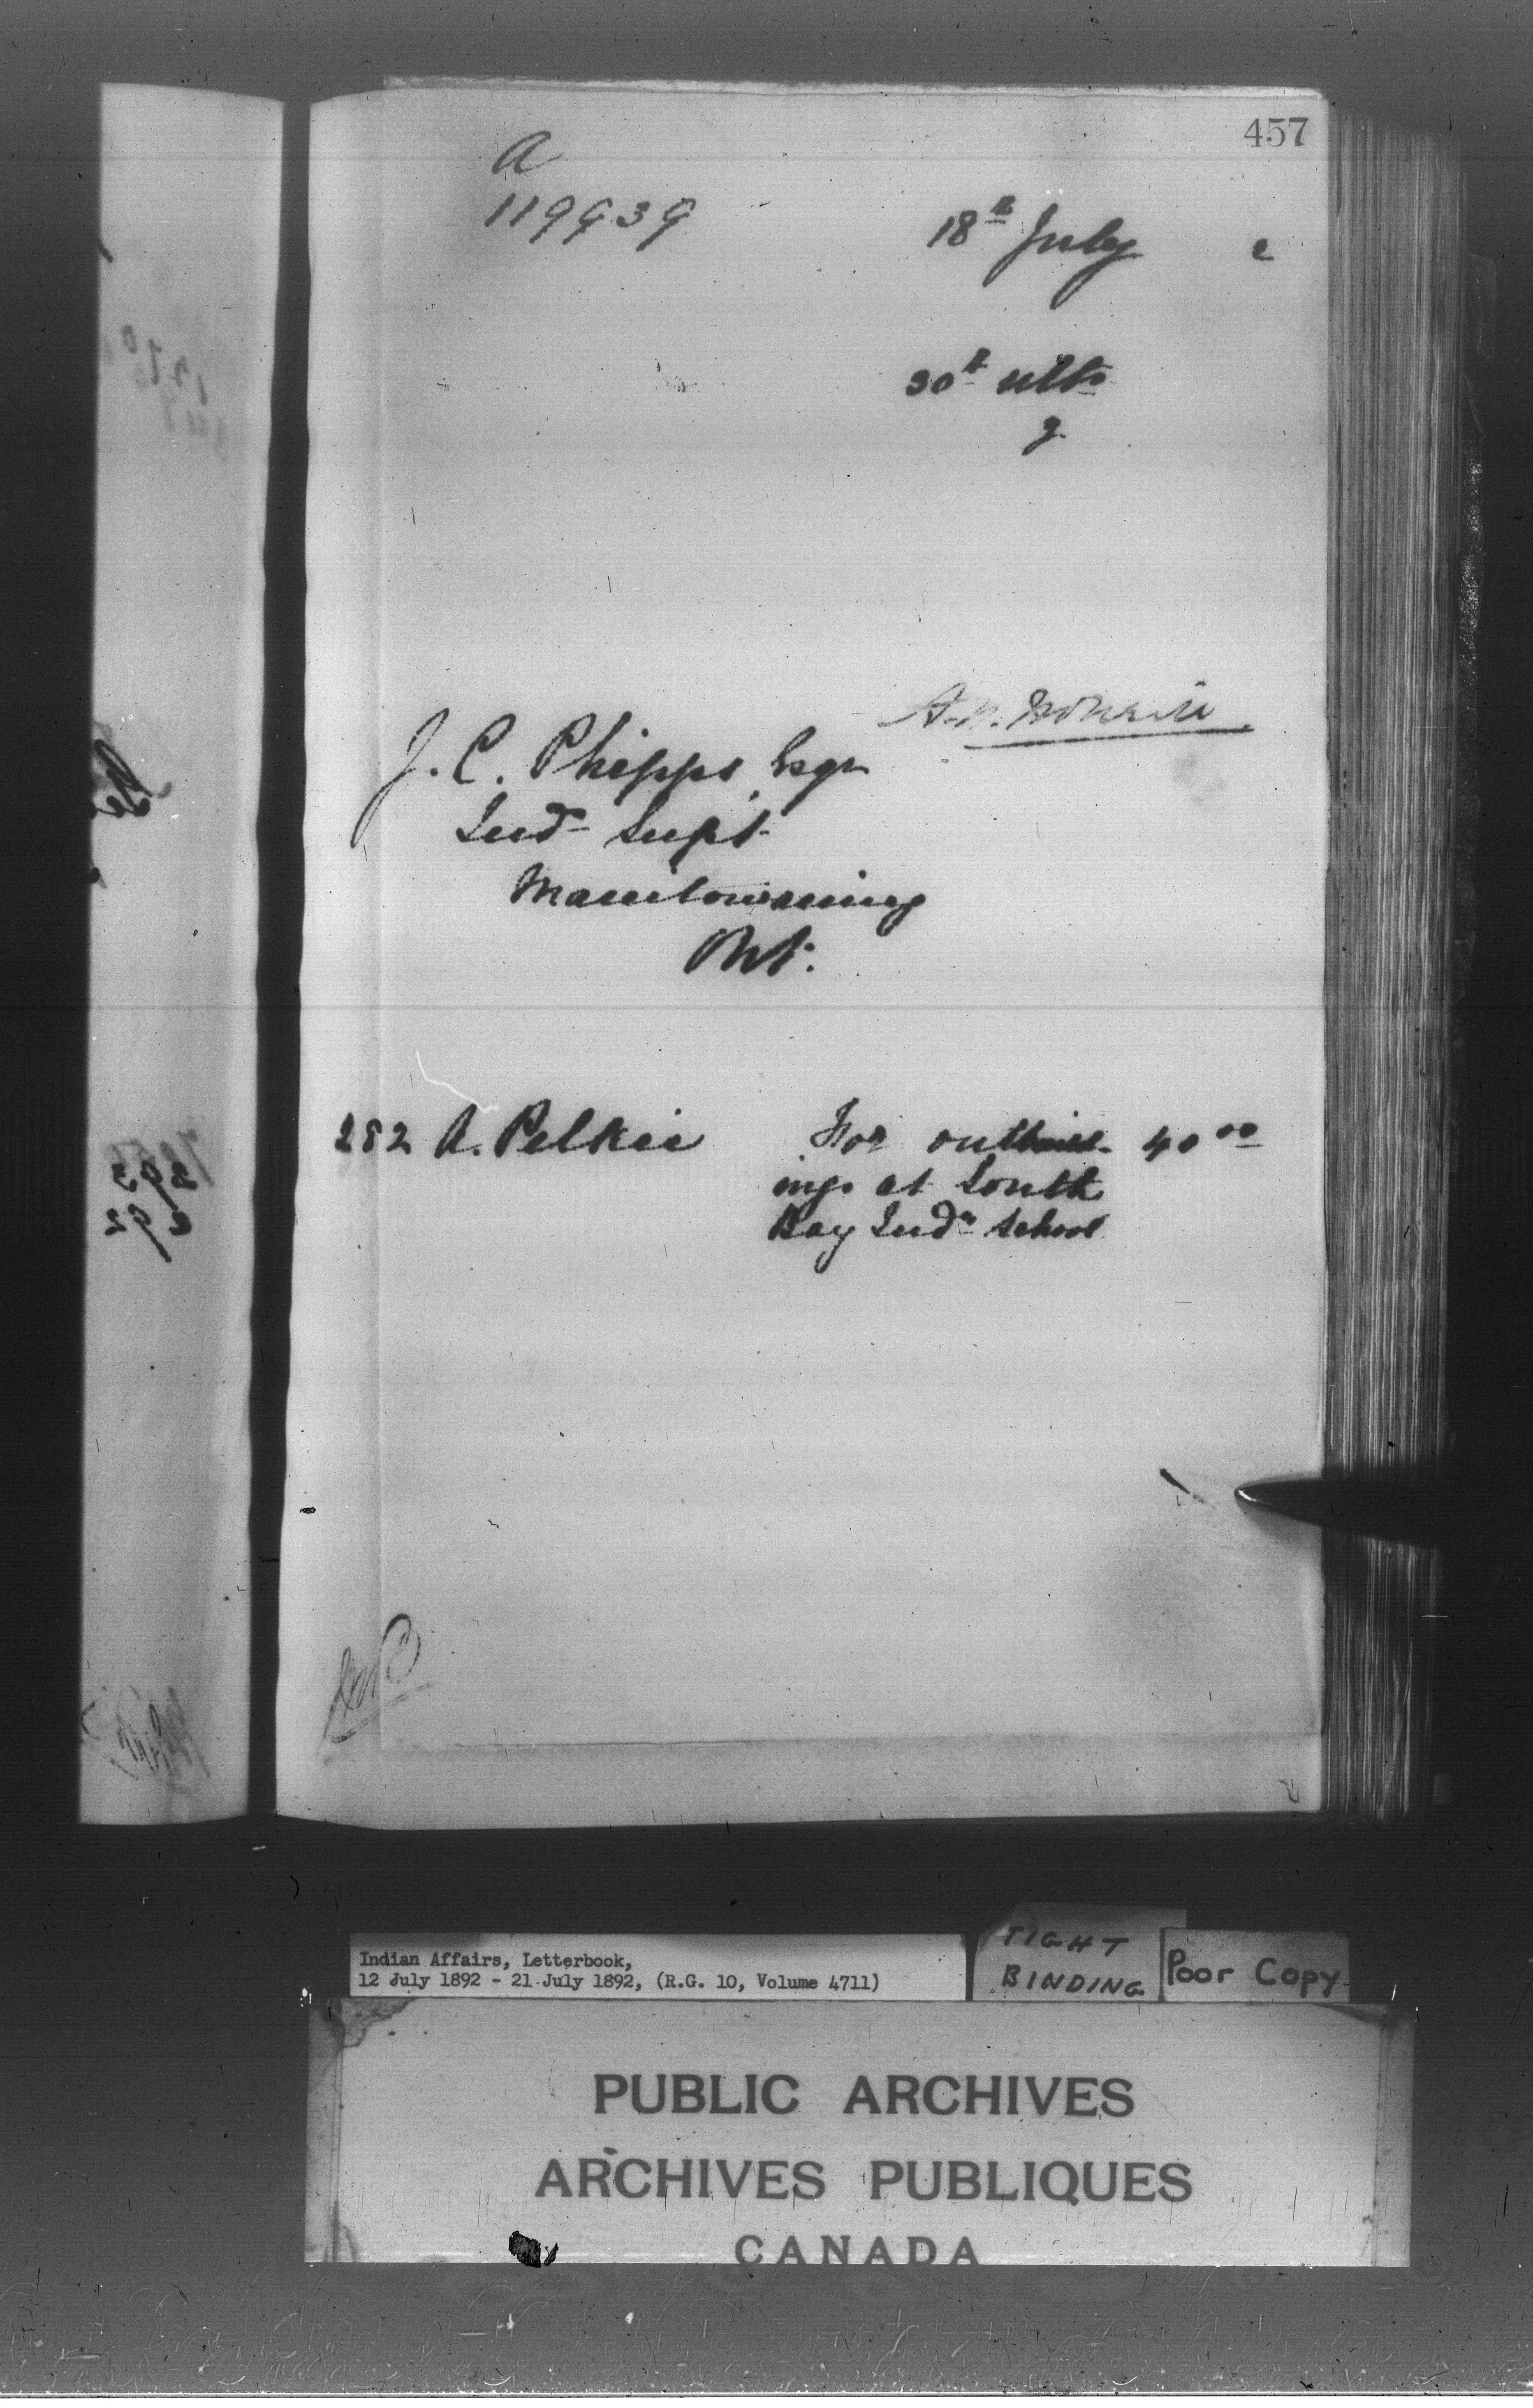 457
A
119939
18th July 2
30th ulto
9
J. C. Phipps, Esqr
Ind Supt
Manitowaning
Ont.
282 A. Pelkie For outbuild- 40 00
ings at South
Bay Indn School
Indian Affairs, Letterbook,
12 July 1892 - 21 July 1892, (R.G. 10, Volume 4711)
TIGHT
BINDING
Poor Copy
PUBLIC ARCHIVES
ARCHIVES PUBLIQUES
CANADA